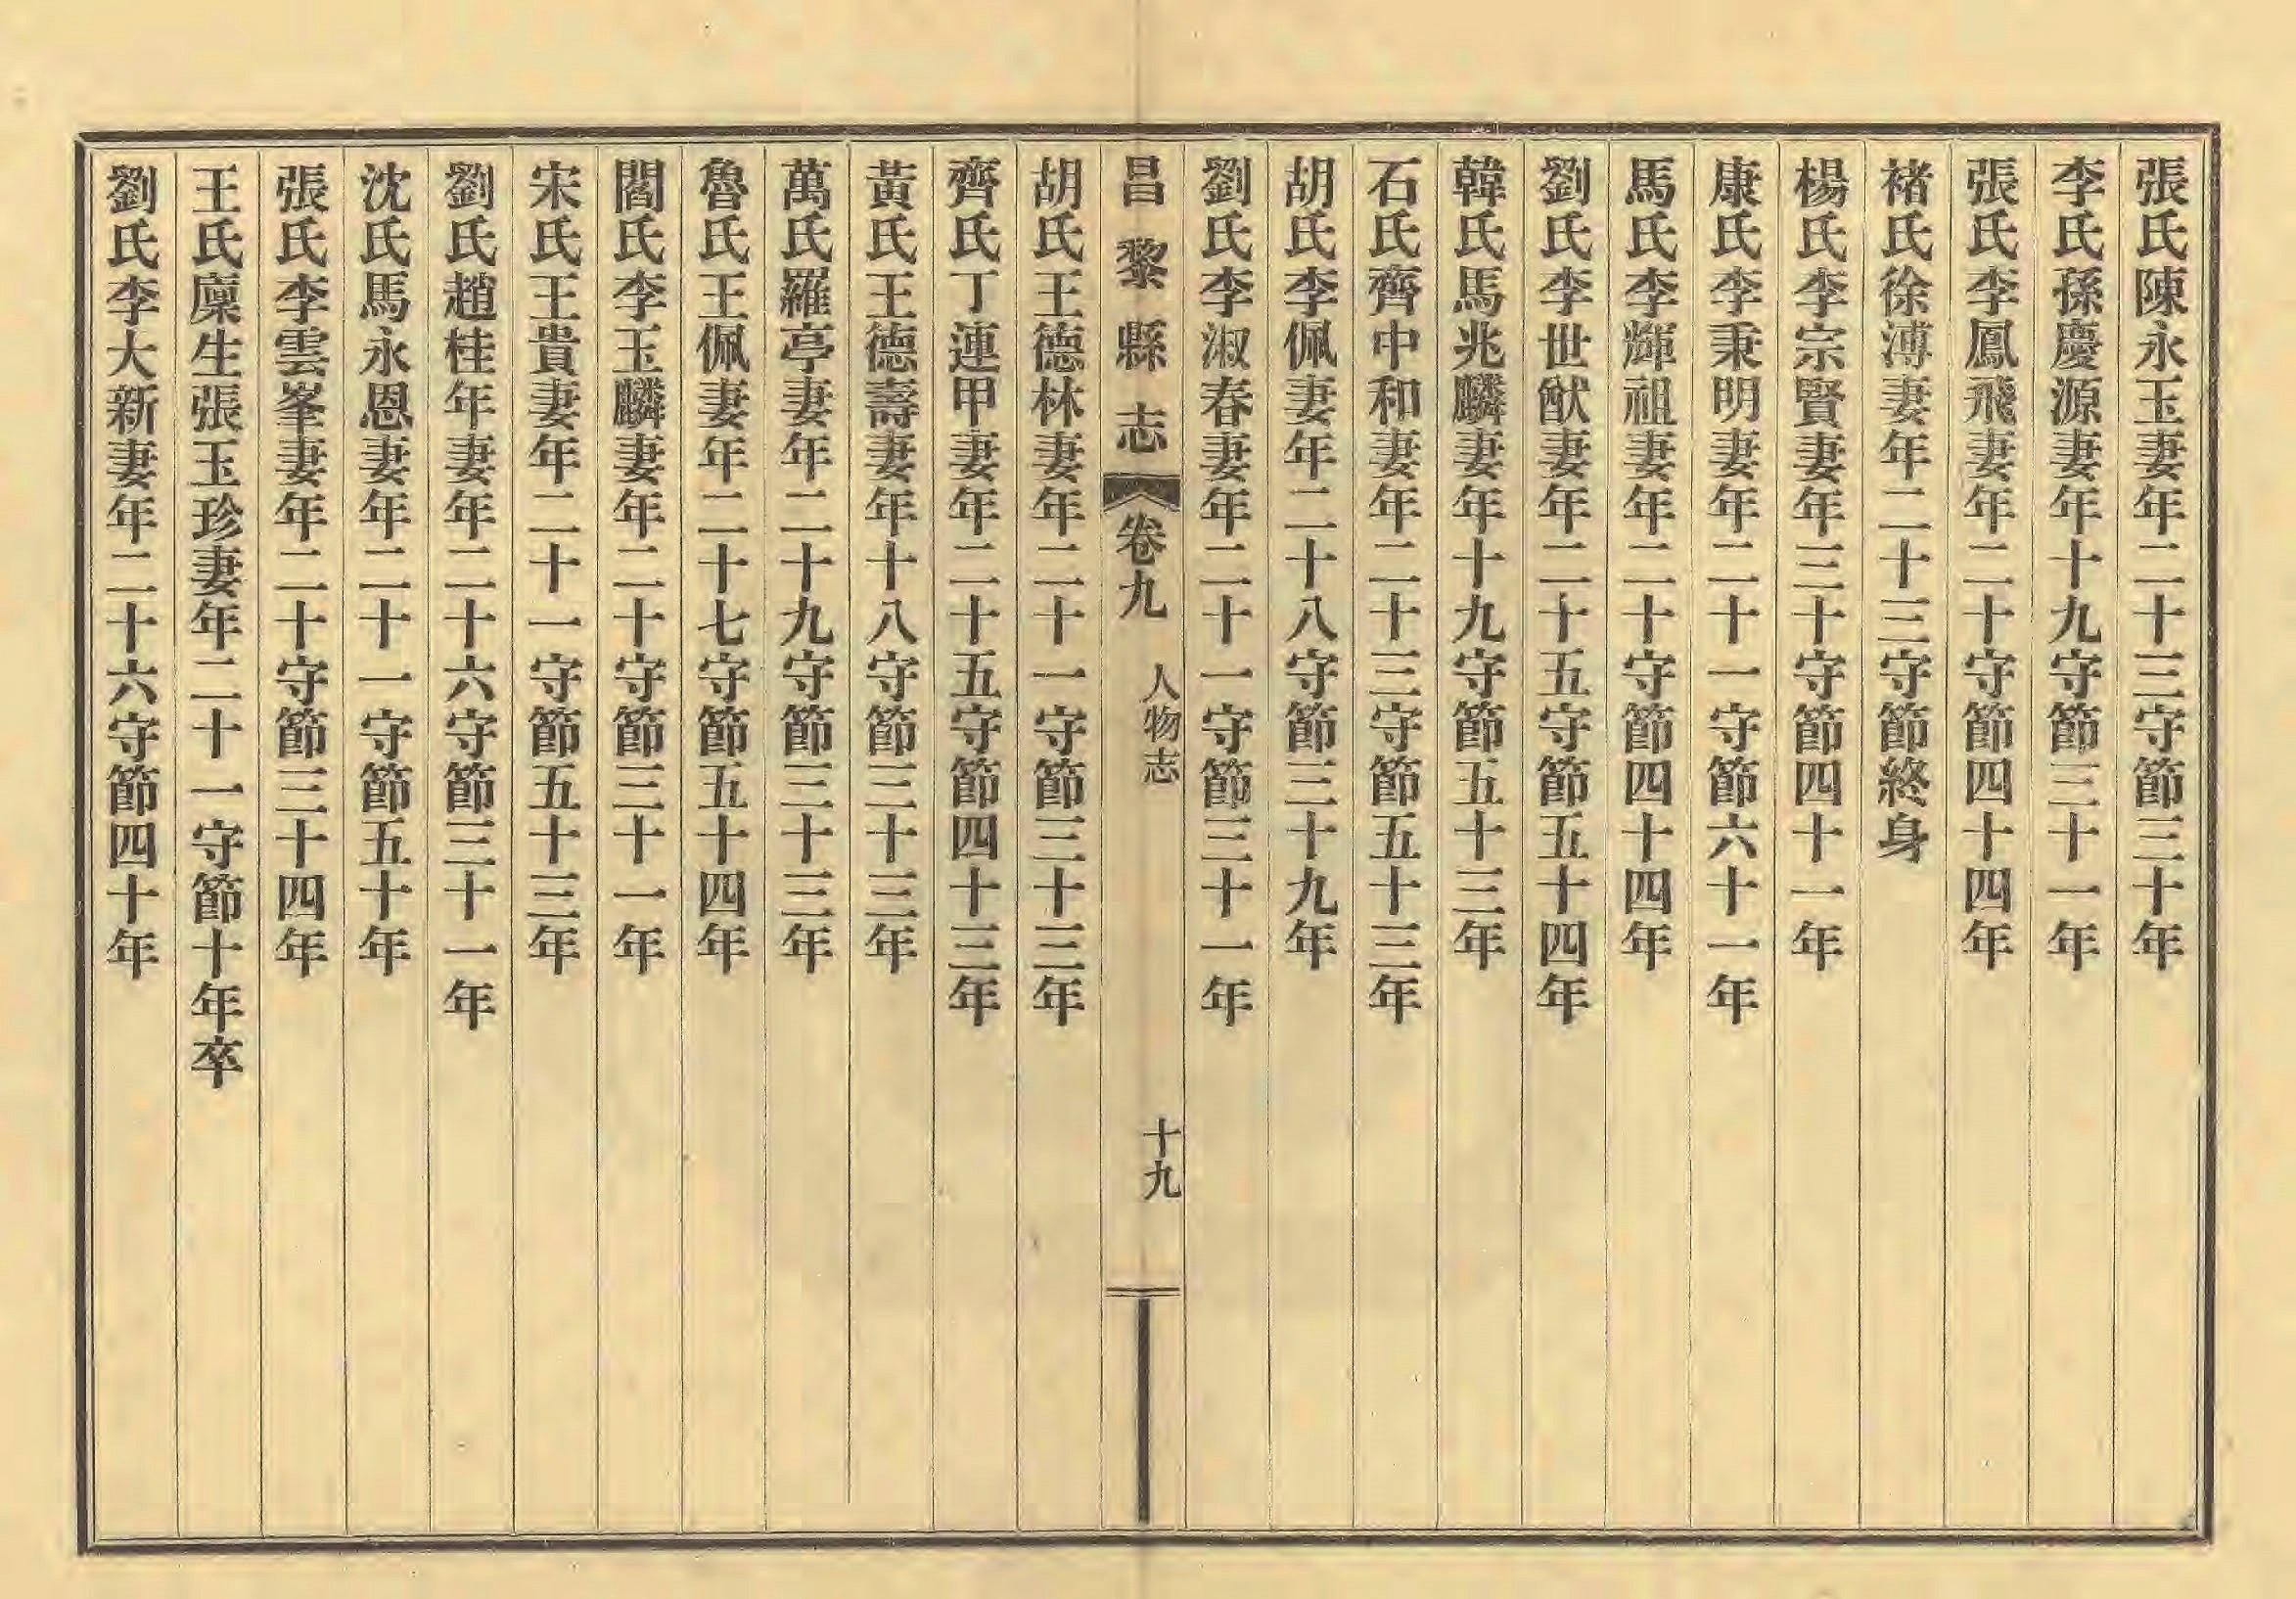 張氏陳永玉妻年二十三守節三十年
李氏孫慶源妻年十九守節三十一年
張氏李鳳飛妻年二十守節四十四年
褚氏徐溥妻年二十三守節終身
楊氏李宗賢妻年三十守節四十一年
康氏李秉明妻年二十一守節六十一年
馬氏李輝祖妻年二十守節四十四年
劉氏李世猷妻年二十五守節五十四年
韓氏馬兆麟妻年十九守節五十三年
石氏齊中和妻年二十三守節五十三年
胡氏李佩妻年二十八守節三十九年
劉氏李淑春妻年二十一守節三十一年
昌黎縣志 卷九 人物志 十九
胡氏王德林妻年二十一守節三十三年
齊氏丁連甲妻年二十五守節四十三年
黃氏王德壽妻年十八守節三十三年
萬氏羅亭妻年二十九守節三十三年
魯氏王佩妻年二十七守節五十四年
閻氏李玉麟妻年二十守節三十一年
宋氏王貴妻年二十一守節五十三年
劉氏趙桂年妻年二十六守節三十一年
沈氏馬永恩妻年二十一守節五十年
張氏李雲峯妻年二十守節三十四年
王氏廩生張玉珍妻年二十一守節十年卒
劉氏李大新妻年二十六守節四十年